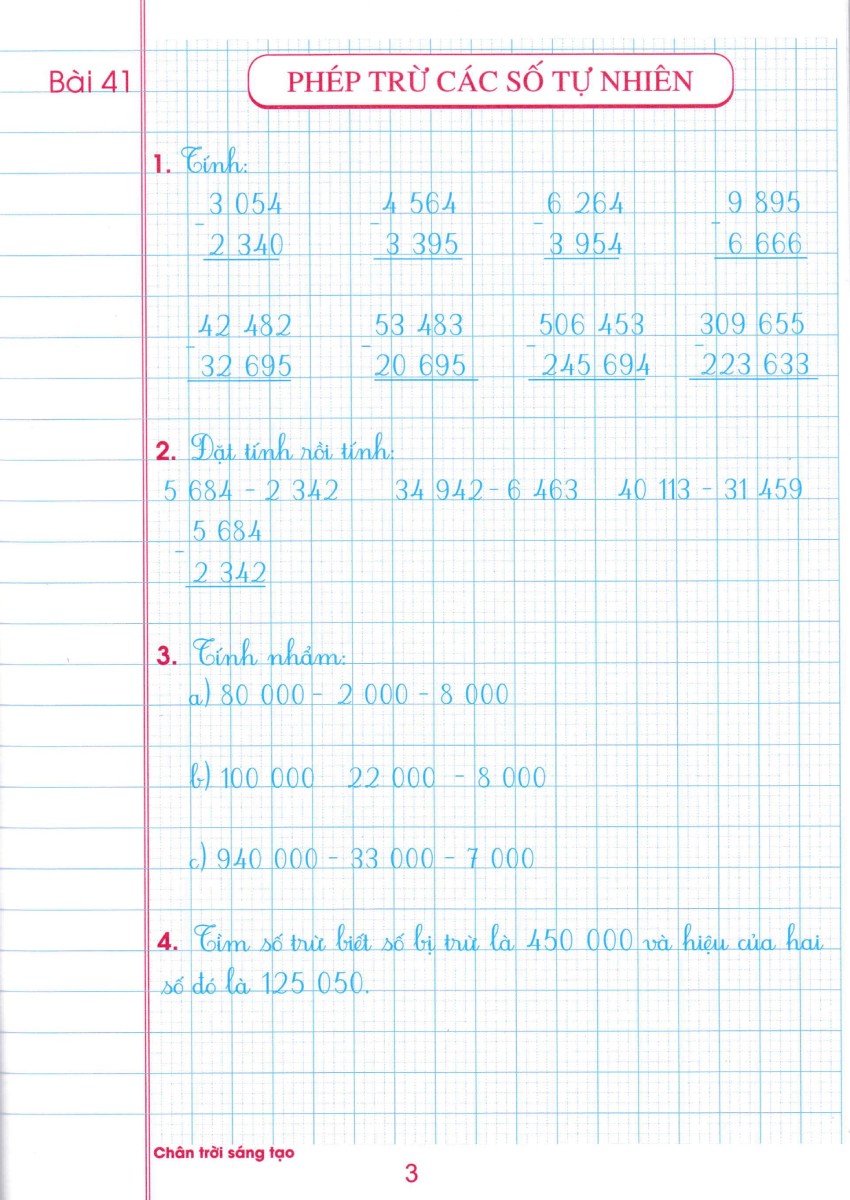 Bài 41
PHÉP TRỪ CÁC SỐ TỰ NHIÊN
1. Tính:
3 054 4 564 6 264 9 895
- - - -
2 340 3 395 3 954 6 666
42 482 53 483 506 453 309 655
- - - -
32 695 20 695 245 694 223 633
2. Đặt tính rồi tính:
5 684 - 2 342 34 942 - 6 463 40 113 - 31 459
5 684
-
2 342
3. Tính nhẩm:
a) 80 000 - 2 000 - 8 000
b) 100 000 22 000 - 8 000
c) 940 000 - 33 000 - 7 000
4. Tìm số trừ biết số bị trừ là 450 000 và hiệu của hai
số đó là 125 050.
Chân trời sáng tạo
3